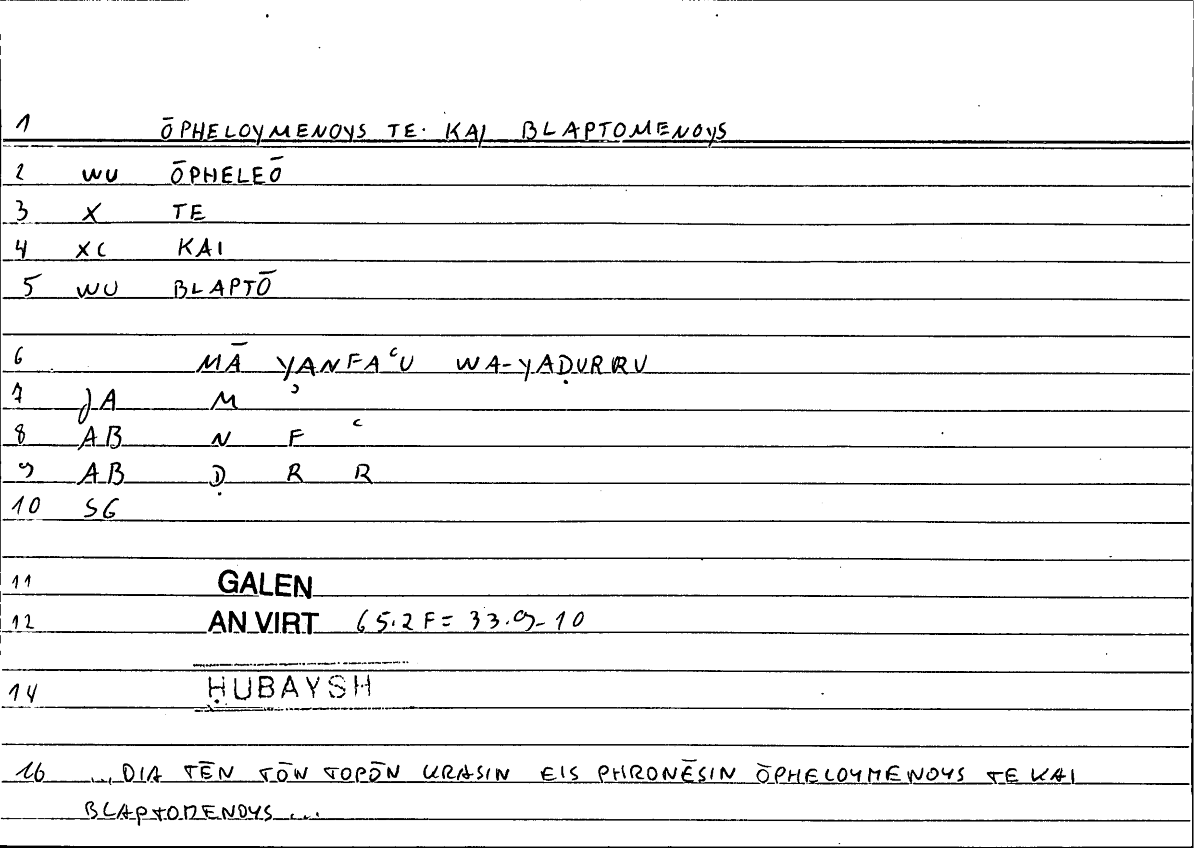 1 ŌPHELOYMENOYS TE KAI BLAPTOMENOYS
2 WU ŌPHELEŌ
3 X TE
4 XC KAI
5 WU BLAPTŌ
6 MĀ YANFAʿU WA-YAḌURRU
7 JA M ʾ
8 AB N F ʿ
9 AB Ḍ R R
10 SG
11 GALEN
12 AN VIRT 65.2F = 33.9-10
14 ḤUBAYSH
16 ...DIA TĒN TŌN TOPŌN KRASIN EIS PHRONĒSIN ŌPHELOYMENOYS TE KAI
BLAPTOMENOYS...